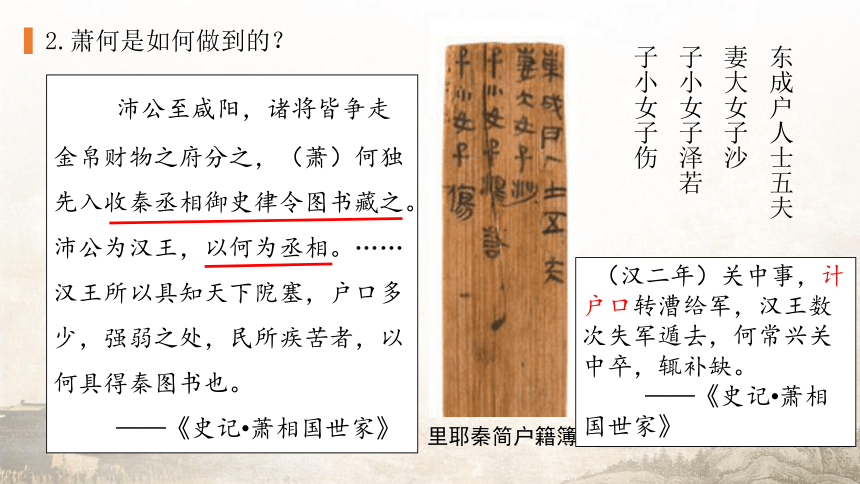 2.萧何是如何做到的？
沛公至咸阳，诸将皆争走
金帛财物之府分之，（萧）何独
先入收秦丞相御史律令图书藏之。
沛公为汉王，以何为丞相。……
汉王所以具知天下阨塞，户口多
少，强弱之处，民所疾苦者，以
何具得秦图书也。
——《史记•萧相国世家》
東成戶人士五夫
妻大女子沙
子小女子澤若
子小女子傷
里耶秦简户籍簿
东成户人士五夫
妻大女子沙
子小女子泽若
子小女子伤
（汉二年）关中事，计
户口转漕给军，汉王数
次失军遁去，何常兴关
中卒，辄补缺。
——《史记•萧相
国世家》